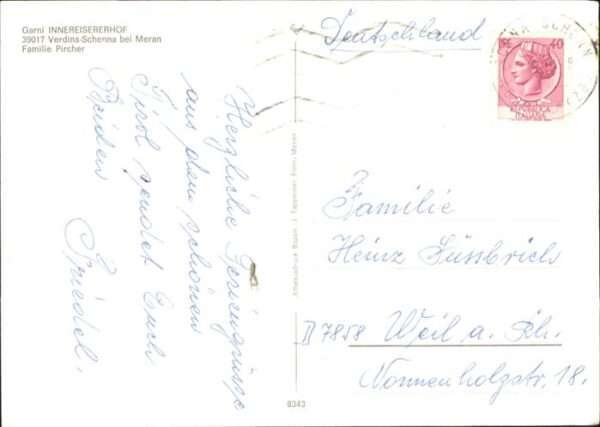 Garni INNEREISERERHOF
39017 Verdins-Schenna bei Meran
Familie Pircher
Herzliche Feriengrüsse
aus dem schönen
Tirol sendet Euch
Beiden
Friedel.
Deutschland
40
ITALIANA
Familie
Heinz Süssbrich
D 7858 Weil a. Rh.
Nonnenholzstr. 18.
8343